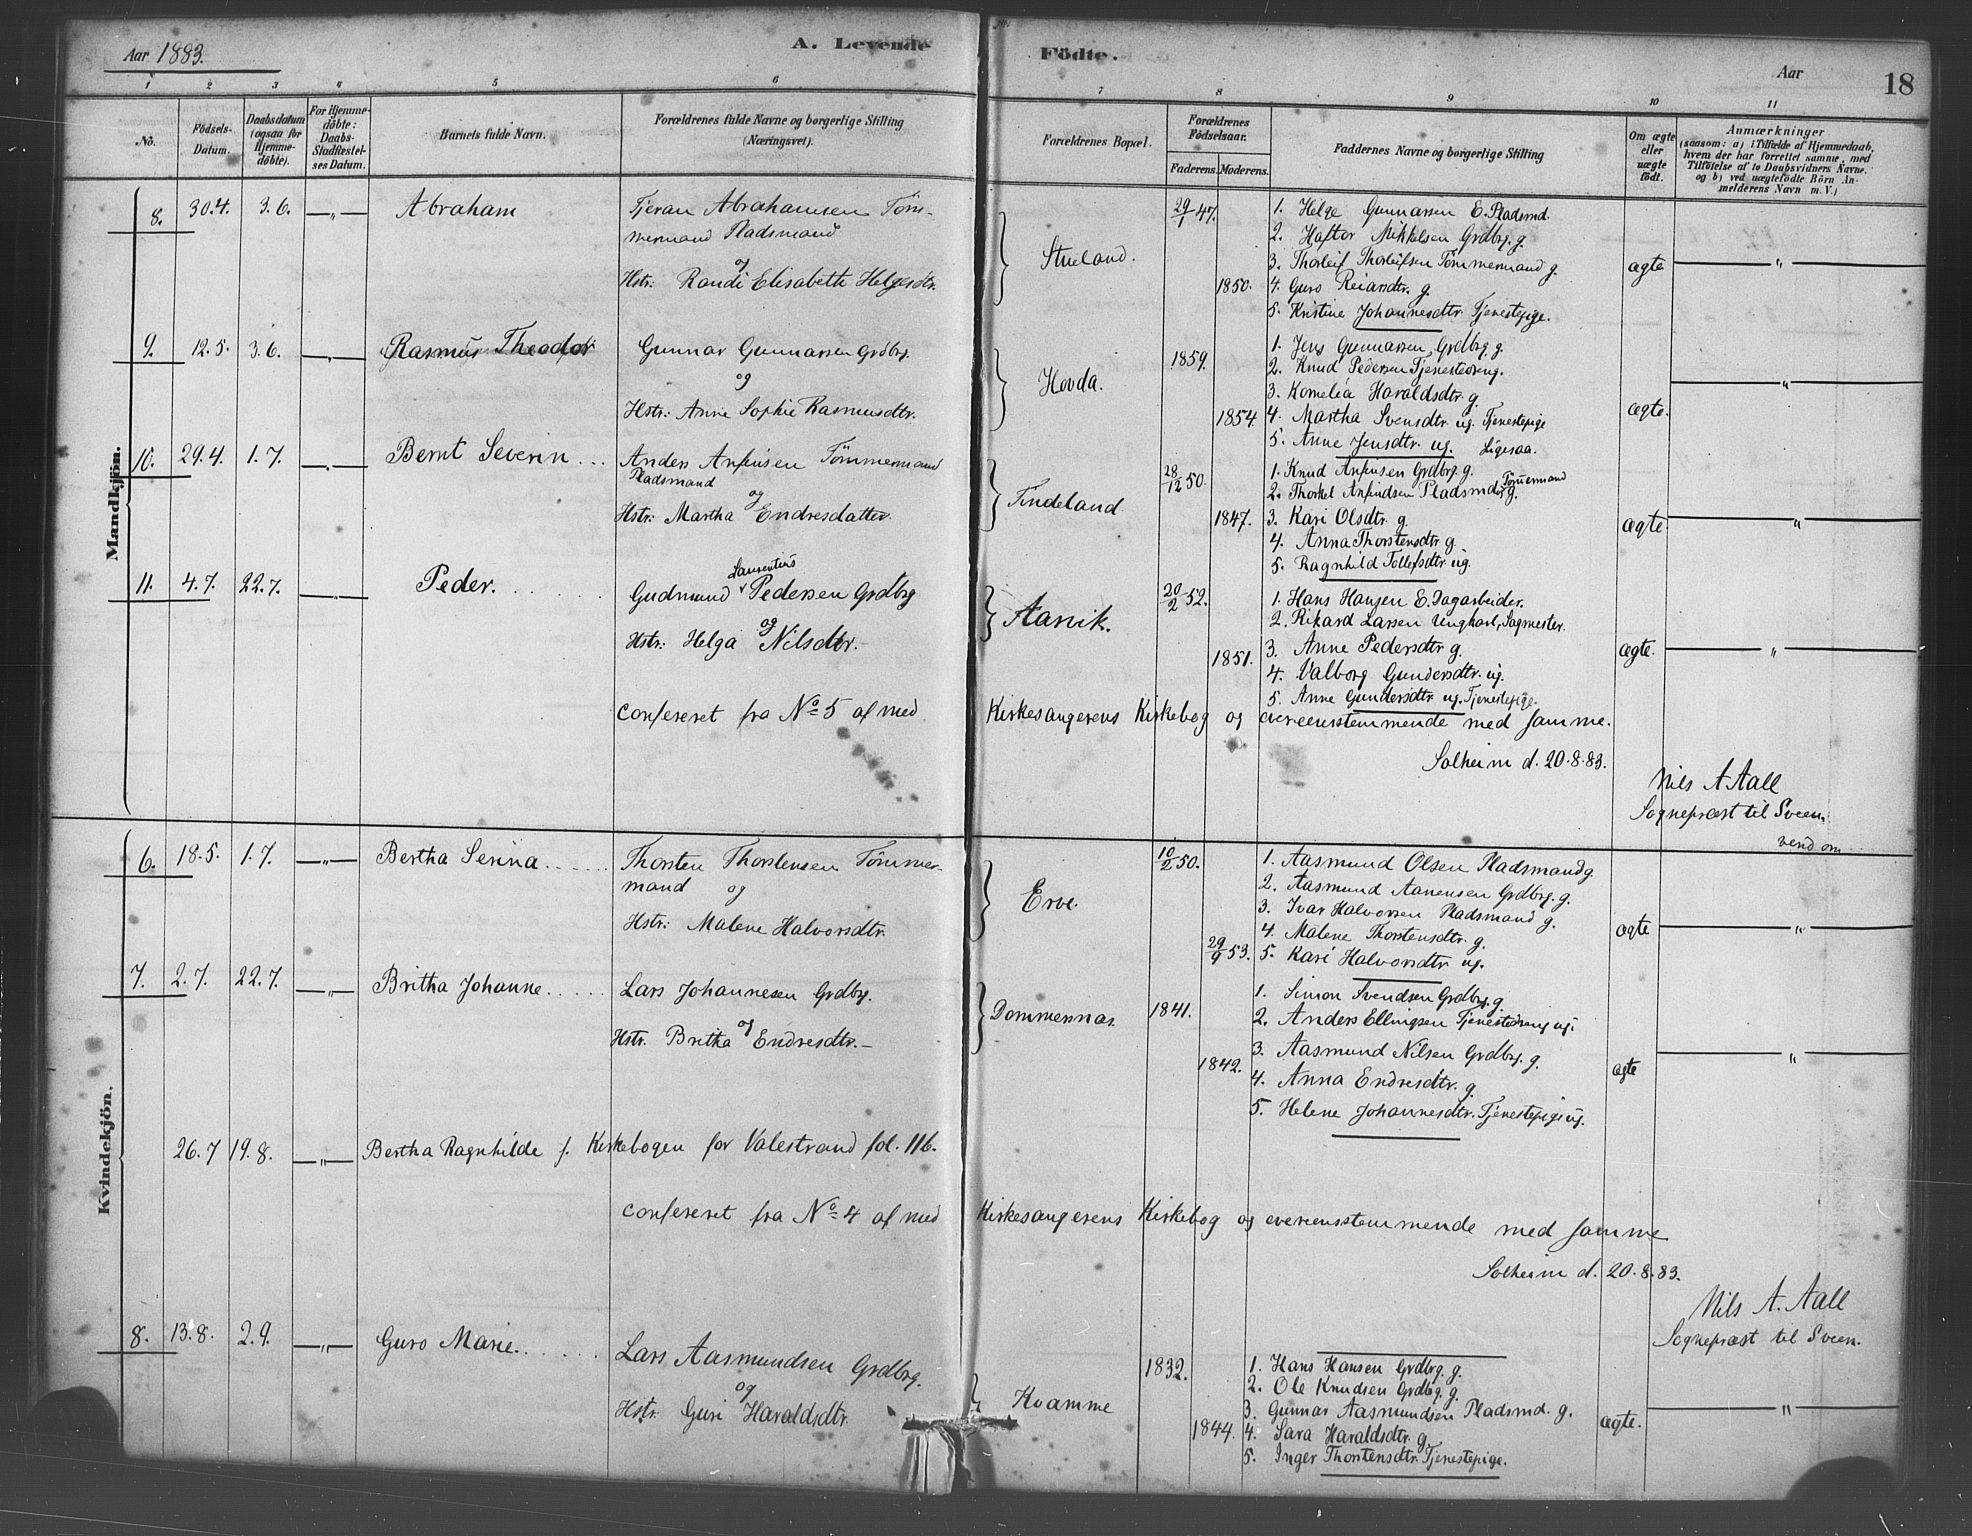 Aar 1883.
A. Levende
Födte.
Aar
18
1 2 3 4 5 6 7 8 9 10 11
No.
Födsels-Datum.
Daabsdatum (ogsaa for Hjemme-döbte).
For Hjemme-döbte: Daabs Stadfæstel-ses Datum.
Barnets fulde Navn.
Forældrenes fulde Navne og borgerlige Stilling (Næringsvei).
Forældrenes Bopæl.
Forældrenes Födselsaar.
Faderens. Moderens.
Faddernes Navne og borgerlige Stilling
Om ægte eller uægte födt.
Anmærkninger
(saasom: a) i Tilfælde af Hjemmedaab,
hvem der har forrettet samme, med
Tilföielse af to Daabsvidners Navne.
og b) ved uægtefödte Börn An-
melderens Navn m. V.)
Mandkjön.
8. 30.4. 3.6. — „ — Abraham
Tjeran Abrahamsen Töm-
mermand Pladsmand
og
Hstr: Randi Elisabeth Helgesdtr.
Stueland.
29/1 47.
1850.
1. Helge Gunnarsen E. Pladsmd.
2. Haftor Mikkelsen Grdbrg. g.
3. Thorleif Thorleifsen Tömmermand g.
4. Guro Reiarsdtr. g.
5. Kristine Johannesdtr. Tjenestepige.
ægte — „ —
9. 12.5. 3.6. — „ — Rasmus Theodor
Gunnar Gunnarsen Grdbrg.
og
Hstr: Anne Sophie Rasmusdtr.
Hovda.
1859.
1854.
1. Jens Gunnarsen Grdbrg. g.
2. Knud Pedersen Tjenestedreng.
3. Kornelia Haraldsdtr. g.
4. Martha Svensdtr. ug. Tjenestepige
5. Anne Jensdtr. ug. Ligesaa.
ægte. — „ —
10. 29.4. 1.7. — „ — Bernt Severin ...
Anders Anfinsen Tömmermand
Pladsmand
og
Hstr: Martha Endresdatter.
Tindeland
28/12 50.
1847.
1. Knud Anfinsen Grdbrg. g.
2. Thorkel Anfindsen Pladsmd og Tömmermand g.
3. Kari Olsdtr. g.
4. Anna Thorstensdtr. g.
5. Ragnhild Tollefsdtr. ug.
ægte. — „ —
11. 4.7. 22.7. — „ — Peder. . . . . . .
Laurentius
Gudmund v Pedersen Grdbrg
og
Hstr: Helga Nilsdtr. —
Aarvik.
20/2 52.
1851.
1. Hans Hansen E. Dagarbeider.
2. Rikard Larsen Ungkarl, Sagmester.
3. Anne Pedersdtr. g.
4. Valborg Gundersdtr. ug.
5. Anne Gundersdtr. ug. Tjenestepige.
ægte. — „ —
confereret fra No 5 af med Kirkesangerens Kirkebog og overeensstemmende med samme.
Solheim d. 20.8.83.
Nils A Aall
Sognepræst til Sveen.
vend om
Kvindekjön.
6. 18.5. 1.7. — „ — Bertha Serina . . . . .
Thorsten Thorstensen Tömmer-
mand og
Hstr: Malene Halvorsdtr.
Erve.
10/2 50.
29/9 53.
1. Aasmund Olsen Pladsmand g.
2. Aasmund Aanensen Grdbrg. g.
3. Ivar Halvorsen Pladsmand g.
4. Malene Thorstensdtr. g.
5. Kari Halvorsdtr. ug.
ægte — „ —
7. 2.7. 22.7. — „ — Britha Johanne . . . . .
Lars Johannesen Grdbrg.
og
Hstr. Britha Endresdtr. —
Dommersnæs.
1841.
1842.
1. Simon Svendsen Grdbrg. g.
2. Anders Ellingsen Tjenestedreng ug.
3. Aasmund Nilsen Grdbrg. g.
4. Anna Endresdtr. g.
5. Helene Johannesdtr. Tjenestepige ug.
ægte — „ —
26.7 19.8. — „ — Bertha Ragnhilde f. Kirkebogen for Valestrand fol. 116.
confereret fra No 4 af med Kirkesangerens Kirkebog og overeensstemmende med samme
Solheim d. 20.8.83.
Nils A. Aall
Sognepræst til Sveen.
8. 13.8. 2.9. — „ — Guro Marie. . . . . .
Lars Aasmundsen Grdbrg.
og
Hstr. Guri Haraldsdtr.
Kvamme
1832.
1844.
1. Hans Hansen Grdbrg. g.
2. Ole Knudsen Grdbrg. g.
3. Gunnar Aasmundsen Pladsmd. g.
4. Sara Haraldsdtr. g.
5. Inger Thorstensdtr. Tjenestepige.
ægte. — „ —